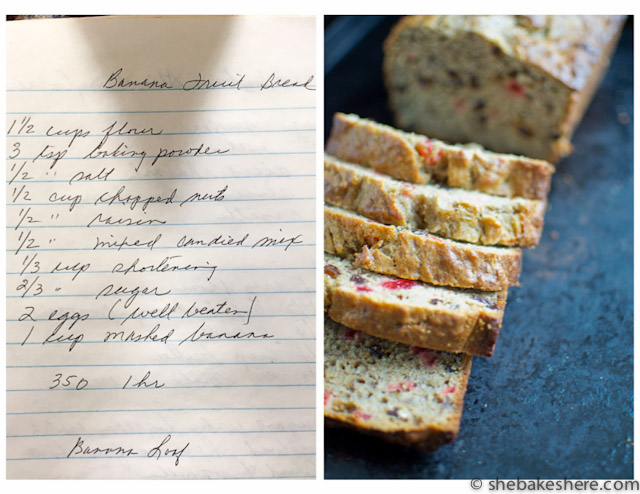 Banana Fruit Bread
1 1/2 cups flour
3 tsp baking powder
1/2 " salt
1/2 cup chopped nuts
1/2 " raisin
1/2 " mixed candied mix
1/3 cup shortening
2/3 " sugar
2 eggs (well beaten)
1 cup mashed banana
350 1 hr
Banana Loaf
© shebakeshere.com